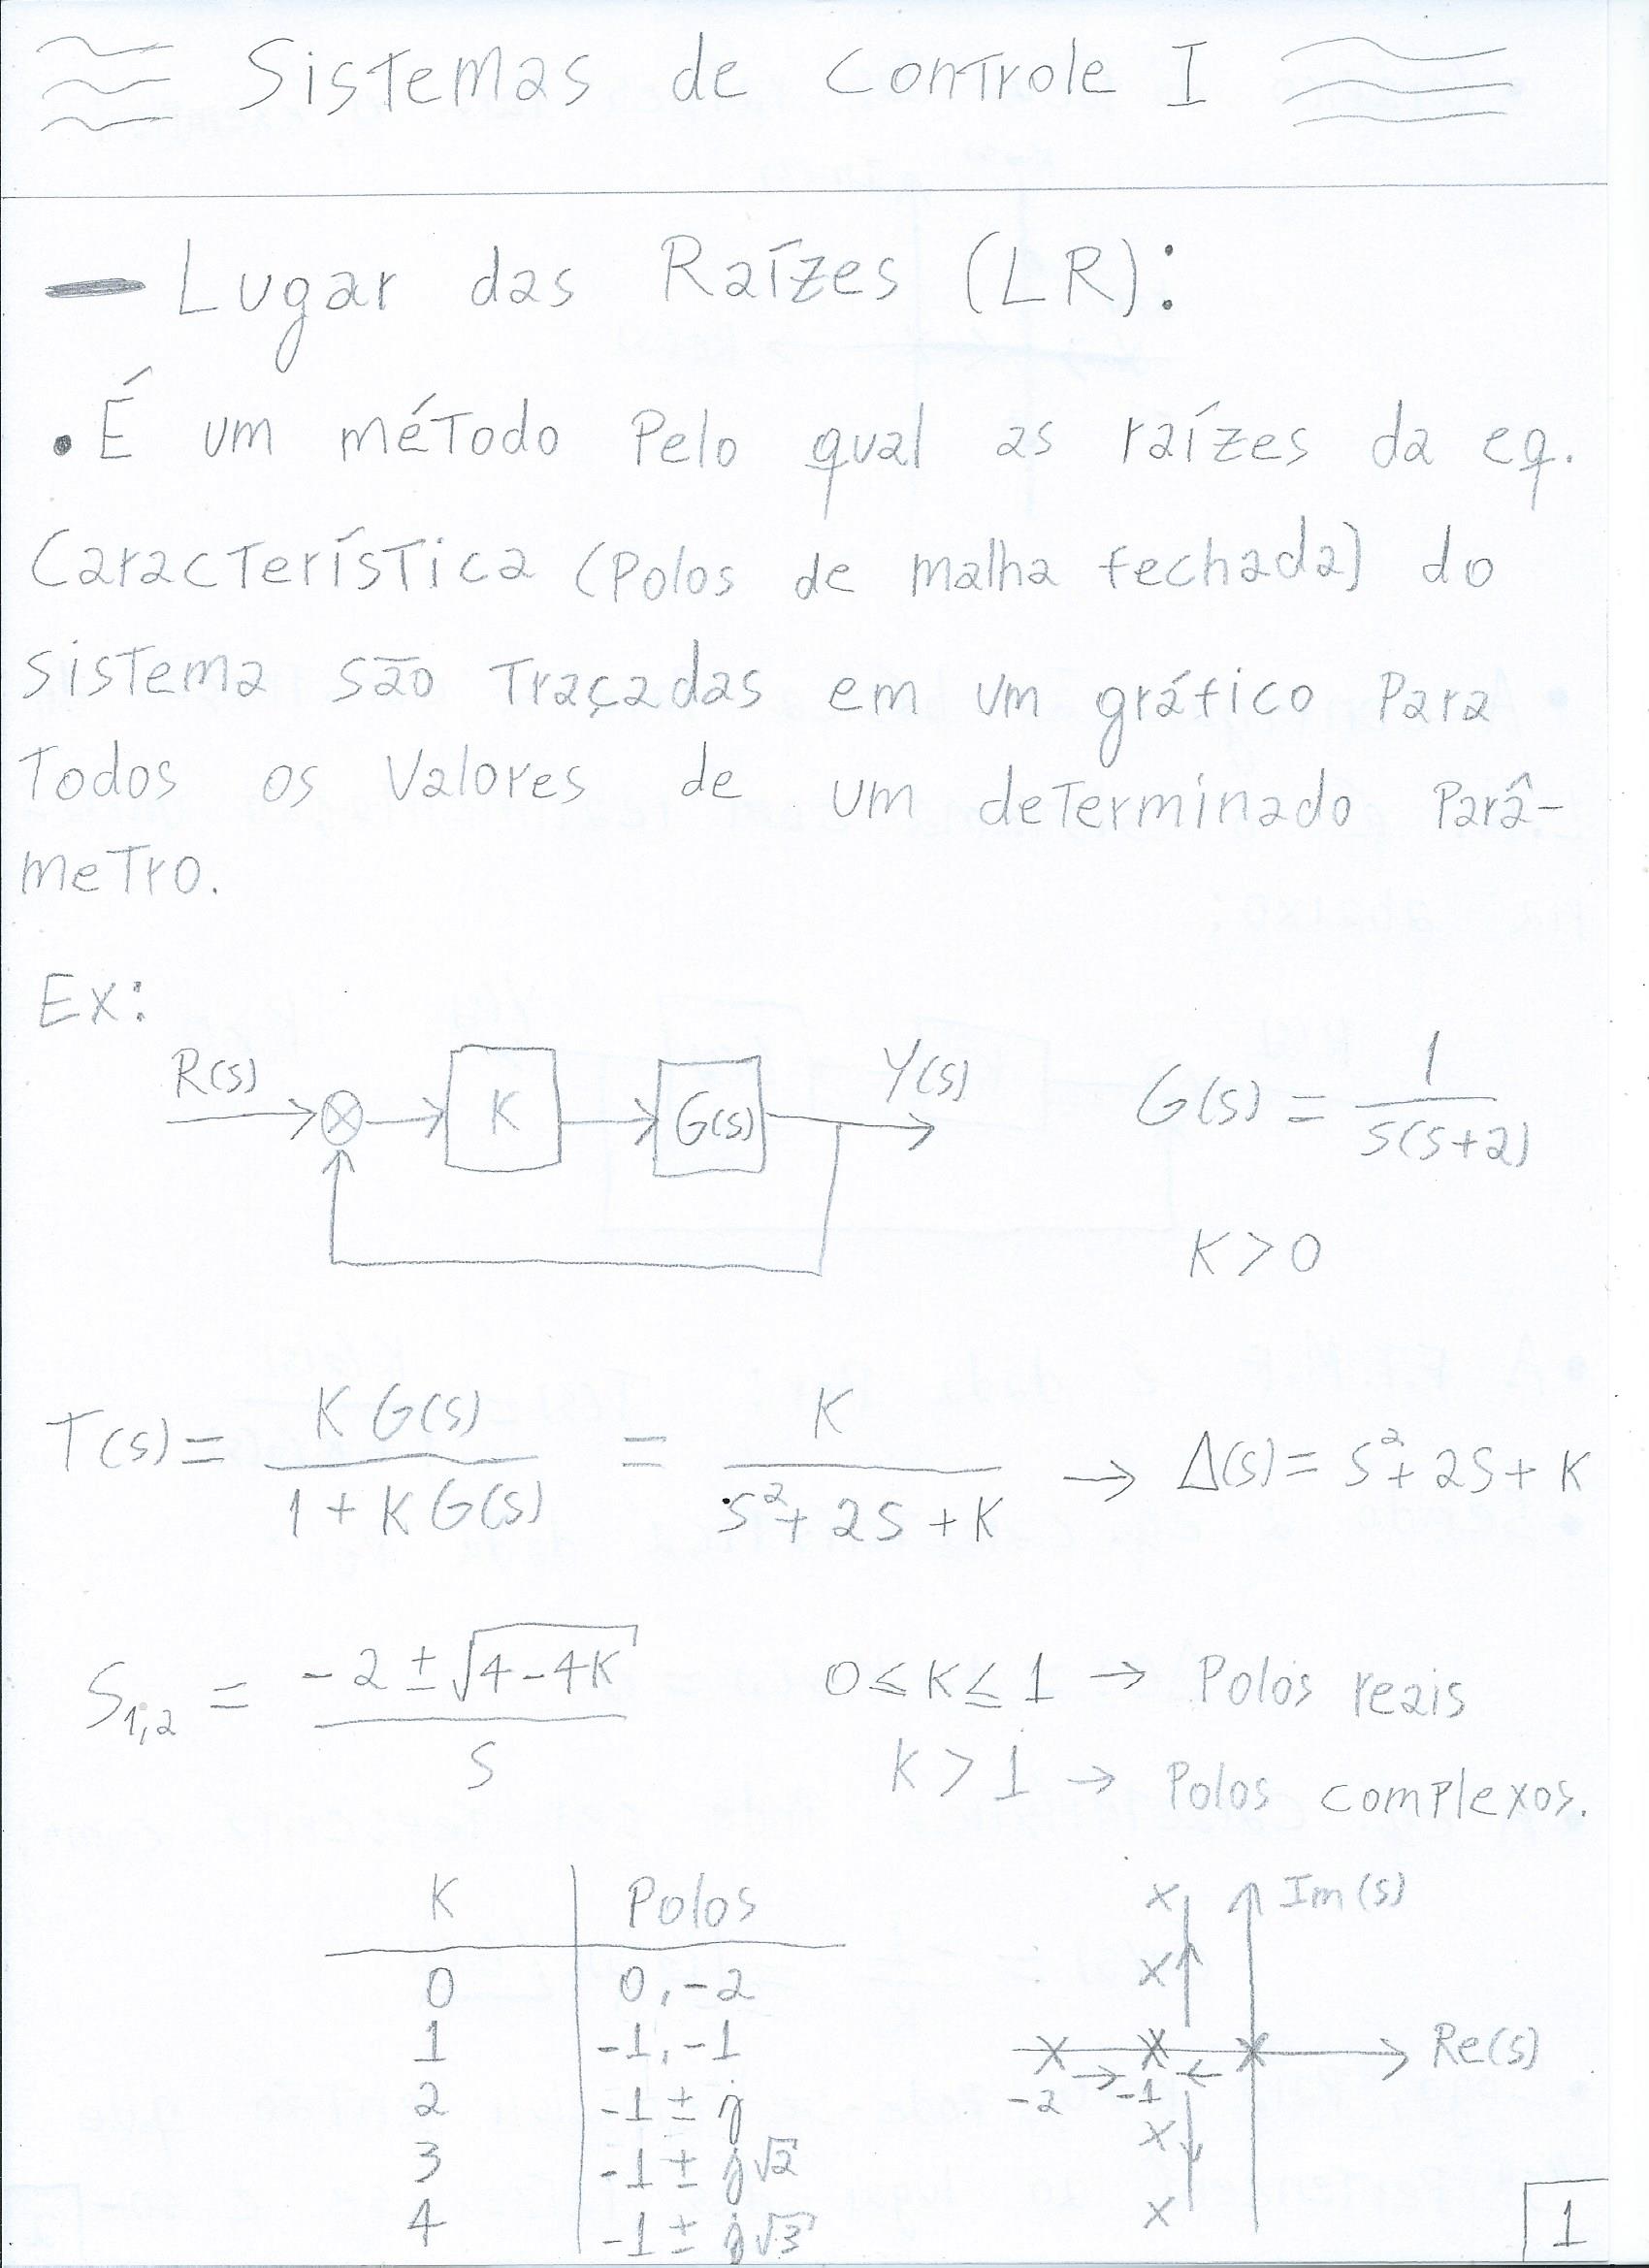 Sistemas de Controle I
— Lugar das Raízes (LR):
• É um método Pelo qual as raízes da eq.
Característica (Polos de malha fechada) do
sistema são Traçadas em um gráfico Para
Todos os Valores de um determinado Parâ-
metro.
Ex:
R(s) K G(s) Y(s) G(s) = 1 / s(s+2)
K > 0
T(s) = K G(s) / 1 + K G(s) = K / s² + 2s + K → Δ(s) = s² + 2s + K
S₁,₂ = -2 ± √4-4K / s 0 ≤ K ≤ 1 → Polos reais
K > 1 → Polos complexos.
K | Polos Im(s)
0 | 0, -2
1 | -1, -1 Re(s)
2 | -1 ± j -2 -1
3 | -1 ± j√2
4 | -1 ± j√3
1